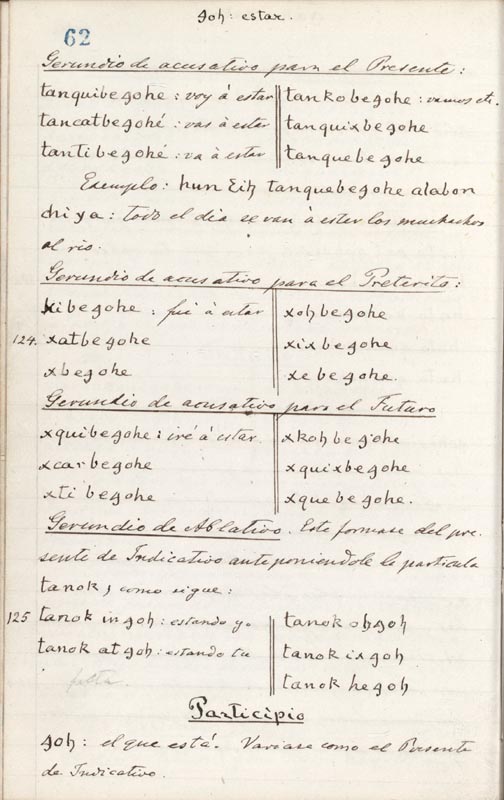 goh: estar.
62
Gerundio de acusativo para el Presente:
tanquibegohe: voy á estar tankobegohe: vamos etc.
tancatbegohé: vas á estar tanquixbegohe
tantibegohé: va á estar tanquebegohe
Exemplo: hun Ɛih tanquebegohe alabon
chi ya: todo el dia se van á estar los muchachos
al rio.
Gerundio de acusativo para el Preterito:
xibegohe: fui á estar xohbegohe
124. xatbegohe xixbegohe
xbegohe xebegohe.
Gerundio de acusativo para el Futuro
xquibegohe: iré á estar. xkohbegohe
xcatbegohe xquixbegohe
xtibegohe xquebegohe.
Gerundio de Ablativo. Este formase del pre-
sente de Indicativo anteponiendole la particula
tanok, como sigue:
125 tanok in goh: estando yo tanok oh goh
tanok at goh: estando tu tanok ix goh
falta. tanok he goh
Participio
goh: el que está. Variase como el Presente
de Indicativo.